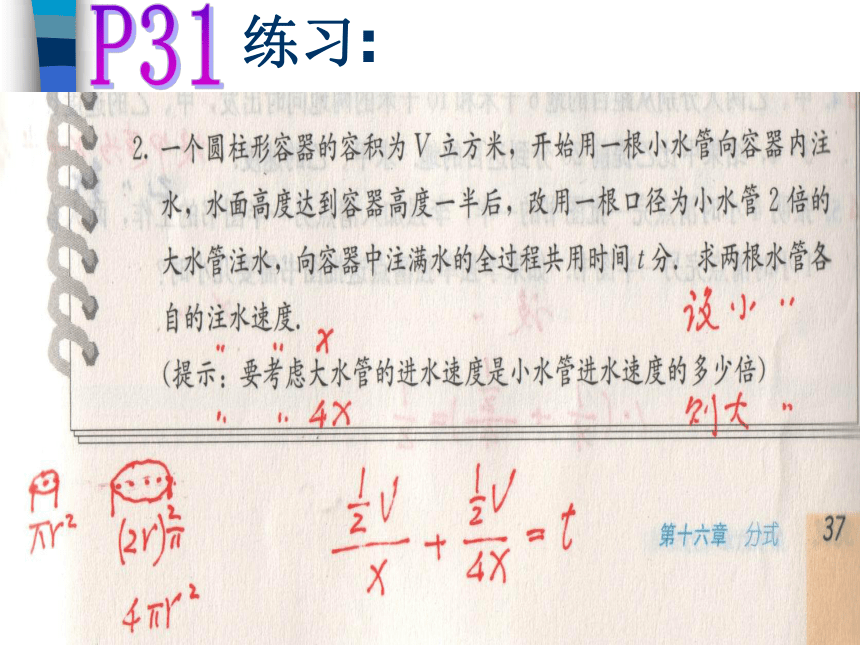 P31 练习:
2. 一个圆柱形容器的容积为 V 立方米，开始用一根小水管向容器内注
水，水面高度达到容器高度一半后，改用一根口径为小水管 2 倍的
大水管注水，向容器中注满水的全过程共用时间 t 分. 求两根水管各
自的注水速度.
设小 "
" " x
(提示：要考虑大水管的进水速度是小水管进水速度的多少倍)
" " 4x
则大 "
πr² (2r)²π
4πr²
½V/x + ½V/4x = t
第十六章 分式 37